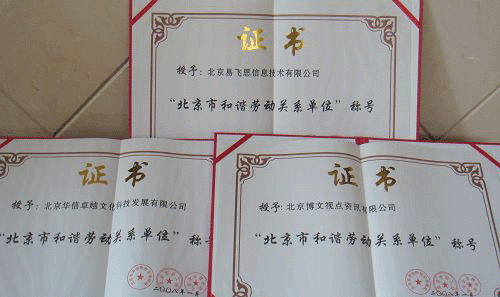 证书
授予：北京易飞思信息技术有限公司
“北京市和谐劳动关系单位”称号
证书
授予：北京华信卓越文化科技发展有限公司
“北京市和谐劳动关系单位”称号
二〇〇八年一月
证书
授予：北京博文视点资讯有限公司
“北京市和谐劳动关系单位”称号
二〇〇八年一月